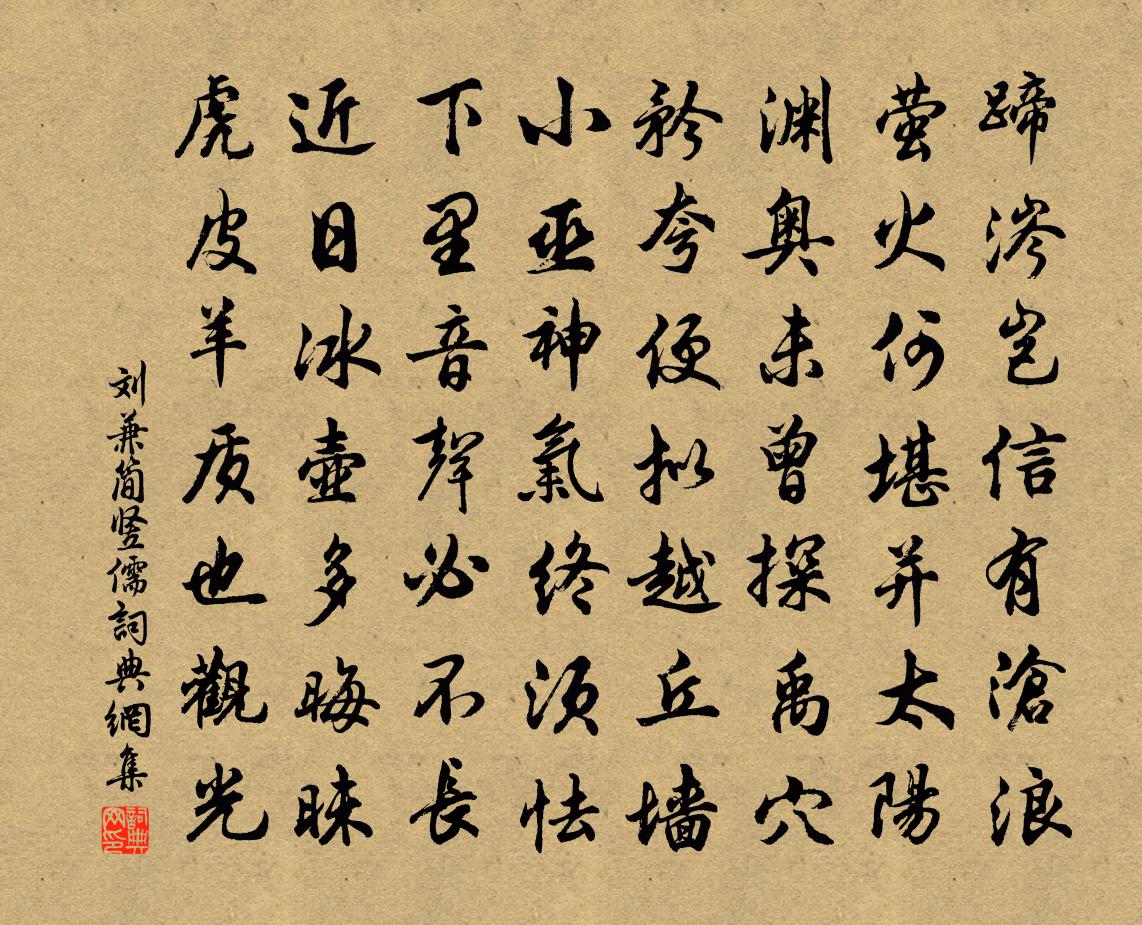 蹄涔岂信有滄浪
萤火何堪并太陽
渊奥未曾探禹穴
矜夸便拟越丘墙
小巫神氣終须怯
下里音聲必不長
近日冰壶多晦昧
虎皮羊质也觀光
刘兼简竖儒詞典網集
詞典網印